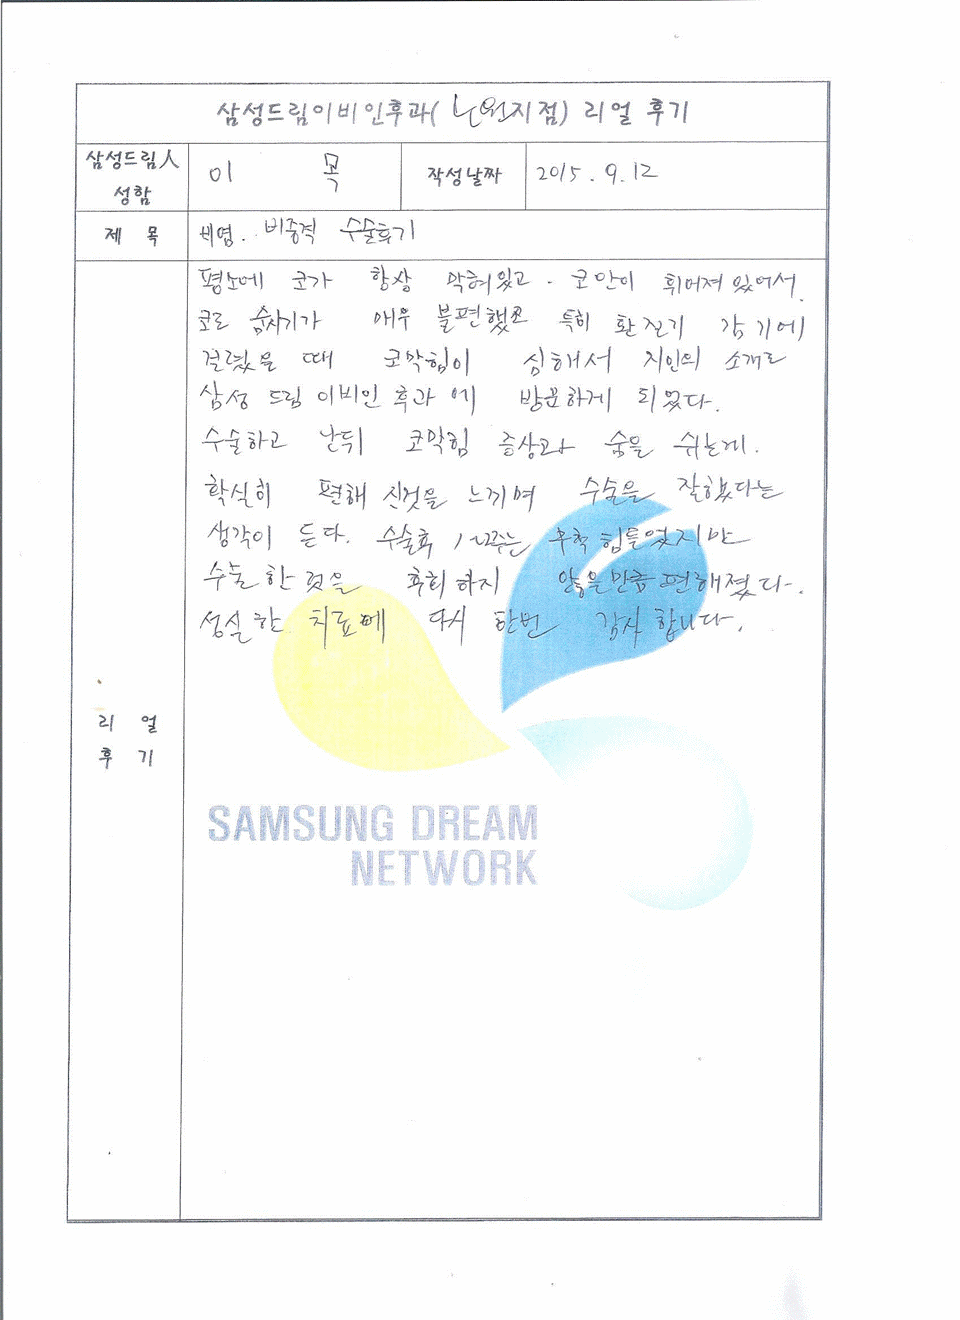 삼성드림이비인후과(노원지점) 리얼 후기
삼성드림人 성함
이 목
작성날짜
2015. 9. 12
제 목
비염. 비중격 수술후기
평소에 코가 항상 막혀있고. 코안이 휘어져 있어서.
코로 숨쉬기가 매우 불편했고 특히 환절기 감기에
걸렸을 때 코막힘이 심해서 지인의 소개로
삼성 드림 이비인 후과 에 방문하게 되었다.
수술하고 난뒤 코막힘 증상과 숨을 쉬는게.
확실히 편해 진것을 느끼며 수술을 잘했다는
생각이 든다. 수술후 1~2주는 무척 힘들었지만
수술 한 것을 후회 하지 않을만큼 편해졌다.
성실 한 치료에 다시 한번 감사 합니다.
리 얼
후 기
SAMSUNG DREAM
NETWORK